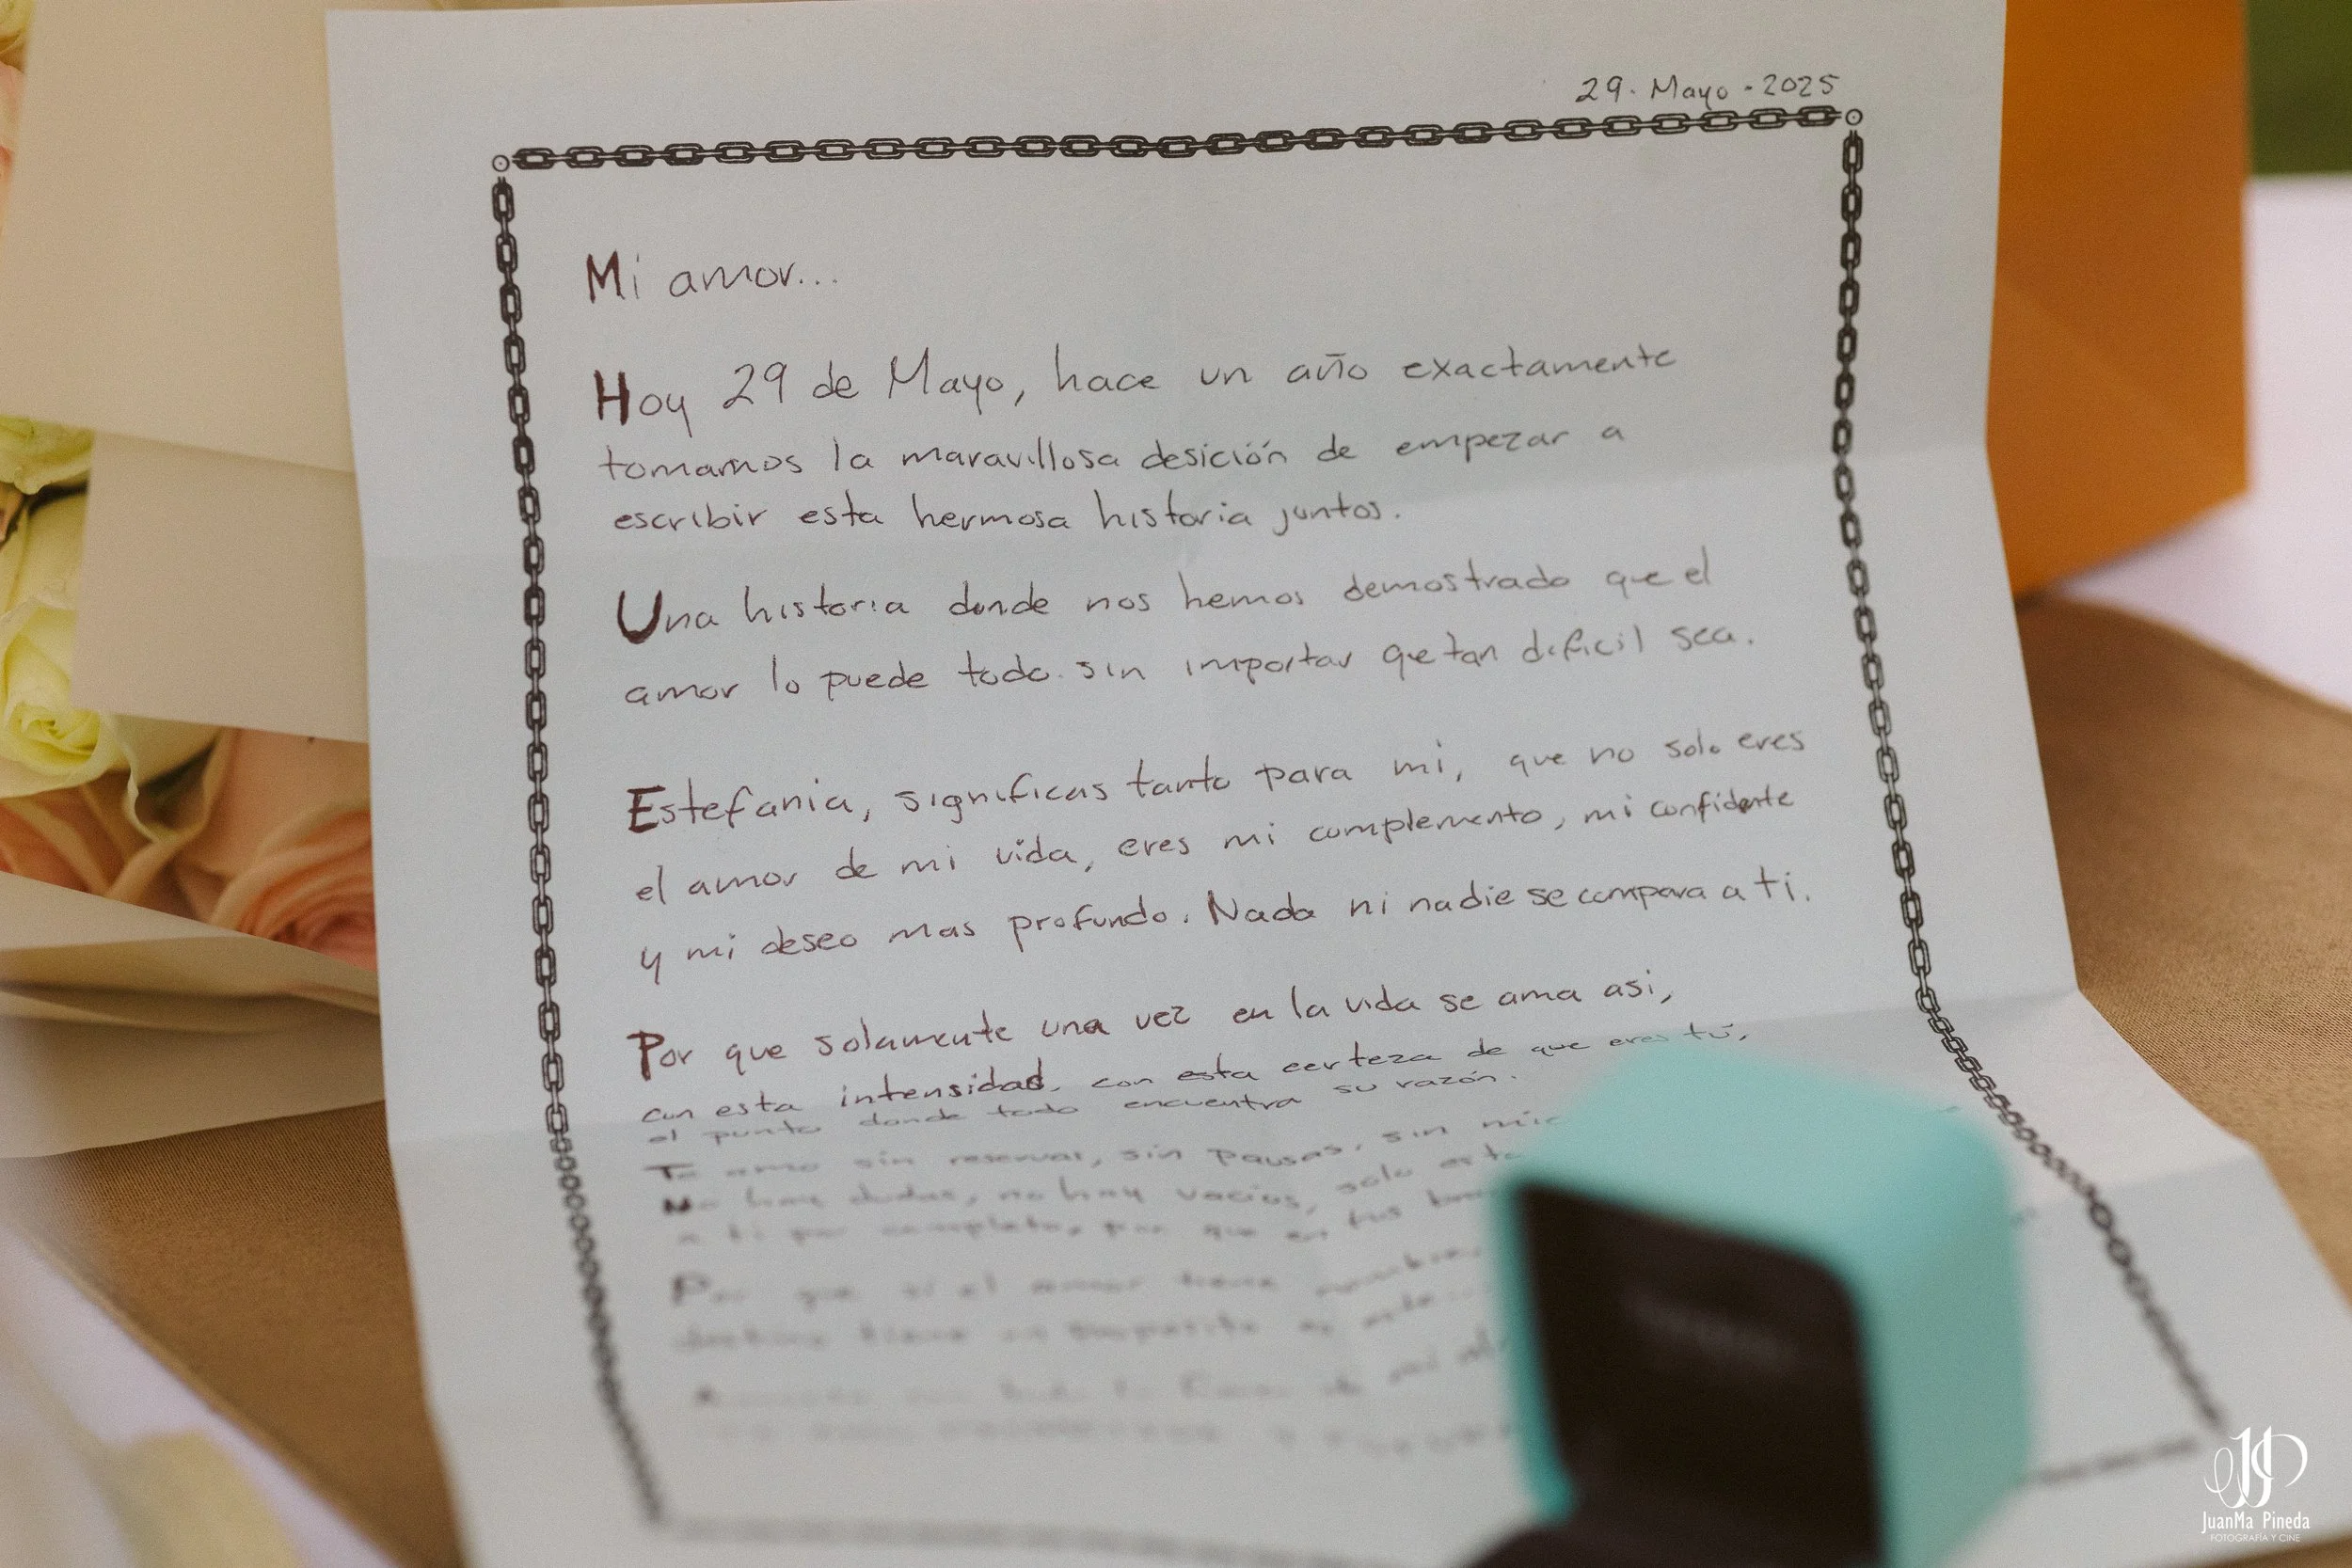 29. Mayo - 2025
Mi amor...
Hoy 29 de Mayo, hace un año exactamente
tomamos la maravillosa desición de empezar a
escribir esta hermosa historia juntos.
Una historia donde nos hemos demostrado que el
amor lo puede todo sin importar que tan dificil sea.
Estefania, significas tanto para mi, que no solo eres
el amor de mi vida, eres mi complemento, mi confidente
y mi deseo mas profundo. Nada ni nadie se compara a ti.
Por que solamente una vez en la vida se ama asi,
con esta intensidad, con esta certeza de que eres tú,
el punto donde todo encuentra su razón.
Te amo sin reservas, sin pausas, sin
No hay dudas, no hay vacios, solo
a ti por completo, por que en tus
Por que si el amor tiene
destino tiene un proposito es
JuanMa Pineda
FOTOGRAFÍA Y CINE